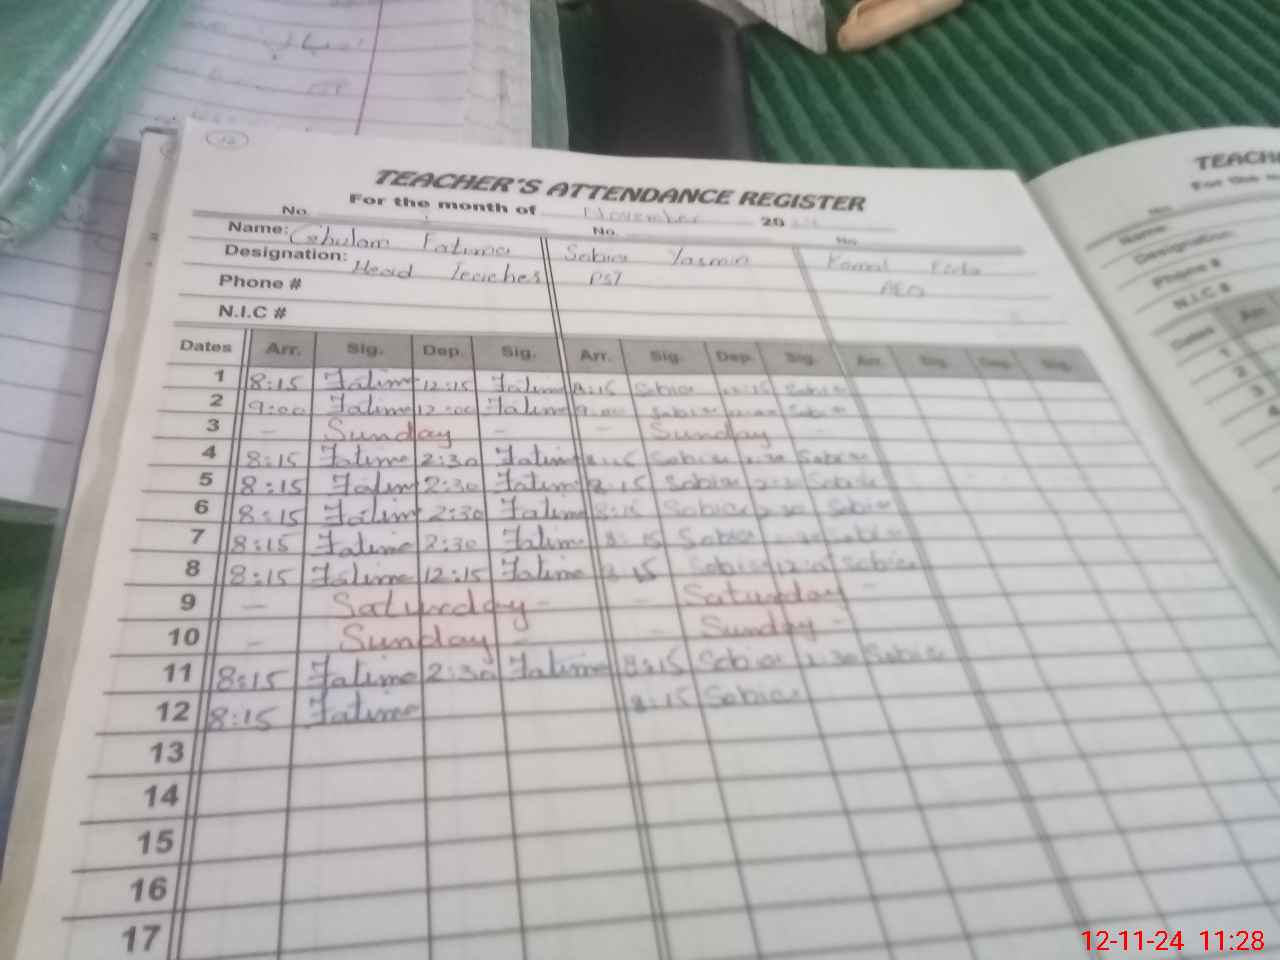 TEACHER'S ATTENDANCE REGISTER
For the month of November 20
No. No. No.
Name: Ghulam Fatima Sabira Yasmin Kamal
Designation: Head Teacher PST AEO
Phone #
N.I.C #
Dates Arr. Sig. Dep. Sig. Arr. Sig. Dep. Sig. Arr. Sig. Dep. Sig.
1 8:15 Fatima 12:15 Fatima 8:15 Sabira 12:15 Sabira
2 9:00 Fatima 12:00 Fatima 9:00 Sabira Sabira
3 - Sunday - - Sunday -
4 8:15 Fatima 2:30 Fatima 8:15 Sabira 2:30 Sabira
5 8:15 Fatima 2:30 Fatima 8:15 Sabira 2:30 Sabira
6 8:15 Fatima 2:30 Fatima 8:15 Sabira 2:30 Sabira
7 8:15 Fatima 2:30 Fatima 8:15 Sabira Sabira
8 8:15 Fatima 12:15 Fatima 8:15 Sabira 12:15 Sabira
9 - Saturday - - Saturday -
10 - Sunday - - Sunday -
11 8:15 Fatima 2:30 Fatima 8:15 Sabira 2:30 Sabira
12 8:15 Fatima 8:15 Sabira
13
14
15
16
17
TEACH
For the m
No.
Name:
Designation:
Phone #
N.I.C #
Dates Arr.
1
2
3
4
12-11-24 11:28